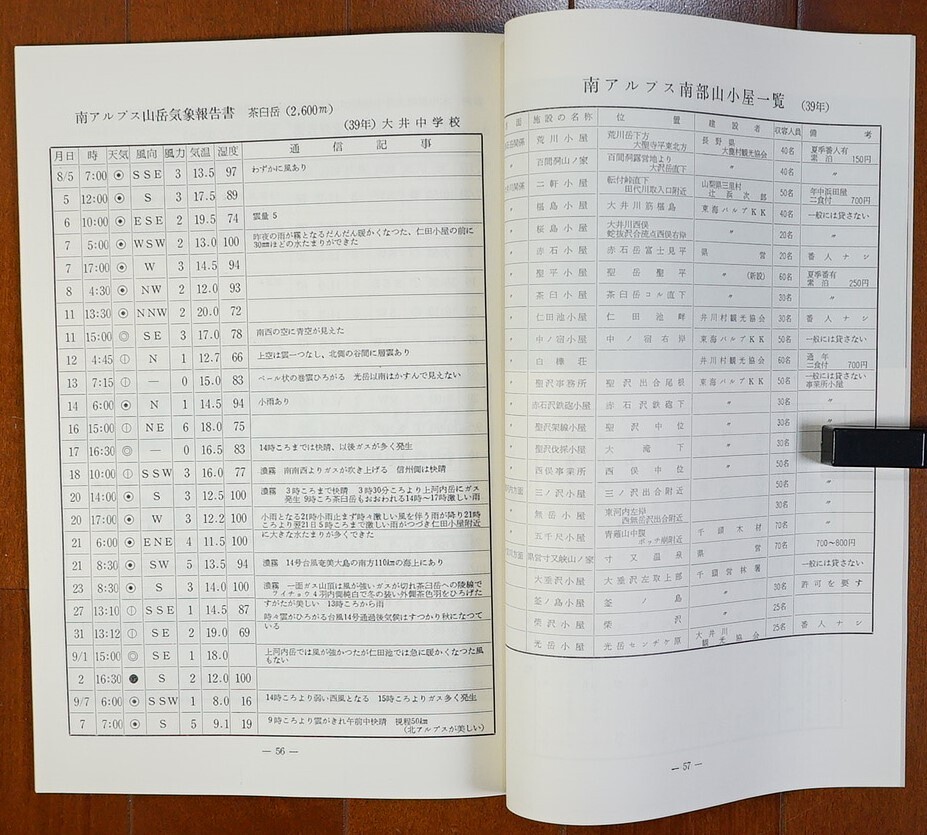 南アルプス山岳気象報告書 茶臼岳 (2,600m)
(39年) 大井中学校
月日 時 天気 風向 風力 気温 湿度 通信記事
8/5 7:00 ⦿ SSE 3 13.5 97 わずかに風あり
5 12:00 ⦿ S 3 17.5 89
6 10:00 ⦿ ESE 2 19.5 74 雲量 5
7 5:00 ⦿ WSW 2 13.0 100 昨夜の雨が霧となるだんだん暖かくなつた、仁田小屋の前に
30㎜ほどの水たまりができた
7 17:00 ⦿ W 3 14.5 94
8 4:30 ⦿ NW 2 12.0 93
11 13:30 ⦿ NNW 2 20.0 72
11 15:00 ◎ SE 3 17.0 78 南西の空に青空が見えた
12 4:45 ⦶ N 1 12.7 66 上空は雲一つなし、北側の谷間に層雲あり
13 7:15 ⦶ — 0 15.0 83 ベール状の巻雲ひろがる 光岳以南はかすんで見えない
14 6:00 ⦿ N 1 14.5 94 小雨あり
16 15:00 ⦶ NE 6 18.0 75
17 16:30 ◎ — 0 16.5 83 14時ころまでは快晴、以後ガスが多く発生
18 10:00 ⦶ SSW 3 16.0 77 濃霧 南南西よりガスが吹き上げる 信州側は快晴
20 14:00 ⦿ S 3 12.5 100 濃霧 3時ころまで快晴 3時30分ころより上河内岳にガス
発生 9時ころ茶臼岳もおおわれる14時〜17時激しい雨
20 17:00 ⦿ W 3 12.2 100 小雨となる21時小雨止まず時々激しい風を伴う雨が降り21時
ころより翌21日5時ころまで激しい雨がつづき仁田小屋附近
21 6:00 ⦿ ENE 4 11.5 100 に大きな水たまりが多くできた
21 8:30 ⦿ SW 5 13.5 94 濃霧 14号台風奄美大島の南方110㎞の海上にあり
23 8:30 ⦿ S 3 14.0 100 濃霧 一面ガス山頂は風が強いガスが切れ茶臼岳への陵線で
ライチョウ4羽内側純白で冬の装い外側茶色羽をひろげた
27 13:10 ⦶ SSE 1 14.5 87 すがたが美しい 13時ころから雨
時々雲がひろがる台風14号通過後気候はすつかり秋になつて
31 13:12 ⦶ SE 2 19.0 69 いる
9/1 15:00 ◎ SE 1 18.0 上河内岳では風が強かつたが仁田池では急に暖かくなつた風
もない
2 16:30 ● S 2 12.0 100
9/7 6:00 ⦿ SSW 1 8.0 16 14時ころより弱い西風となる 15時ころよりガス多く発生
7 7:00 ⦿ S 5 9.1 19 9時ころより雲がきれ午前中快晴 視程50㎞
(北アルプスが美しい)
— 56 —
南アルプス南部山小屋一覧 (39年)
面 施設の名称 位置 建設者 収容人員 備考
荒川小屋 荒川岳下方 大聖寺平東北方 長野県 大鹿村観光協会 40名 夏季番人有 素泊 150円
〃 百間洞山ノ家 百間洞露営地より 大沢岳直下 〃 40名 〃
二軒小屋 転付峠直下 田代川取入口附近 山梨県三里村 辻浜次郎 50名 年中浜田屋 二食付 700円
〃 椹島小屋 大井川筋椹島 東海パルプKK 40名 一般には貸さない
〃 桜島小屋 大井川西俣 蛇抜沢合流点西俣右岸 〃 20名 〃
〃 赤石小屋 赤石岳富士見平 県営 20名 番人ナシ
〃 聖平小屋 聖岳聖平 〃 (新設) 60名 夏季番有 素泊 250円
〃 茶臼小屋 茶臼岳コル直下 〃 30名 〃
〃 仁田池小屋 仁田池畔 井川村観光協会 30名 番人ナシ
〃 中ノ宿小屋 中ノ宿右岸 東海パルプKK 50名 一般には貸さない
〃 白樺荘 井川村観光協会 60名 通年 二食付 700円
〃 聖沢事務所 聖沢出合尾根 東海パルプKK 50名 一般には貸さない 事業所小屋
〃 赤石沢鉄砲小屋 赤石沢鉄砲下 〃 30名 〃
〃 聖沢架線小屋 聖沢中位 〃 30名 〃
〃 聖沢伐採小屋 大滝下 〃 30名
〃 西俣事業所 西俣中位 〃 50名
三ノ沢小屋 三ノ沢出合附近 〃 50名 〃
〃 無岳小屋 東河内左岸 西無岳沢出合附近 〃 30名 〃
〃 五千尺小屋 青薙山中腹 ボッチ崩附近 千頭木材 70名 〃
県営寸又峡山ノ家 寸又温泉 県営 70名 700〜800円
〃 大垂沢小屋 大垂沢左取上部 千頭営林署 一般には貸さない
〃 釜ノ島小屋 釜ノ島 〃 30名 許可を要す
〃 柴沢小屋 柴沢 〃 25名 〃
〃 光岳小屋 光岳センヂケ原 大井川観光協会 25名 番人ナシ
— 57 —